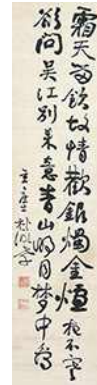 霜天留飲故情歡銀燭金爐夜不寒
欲問吳江別來意青山明月夢中看